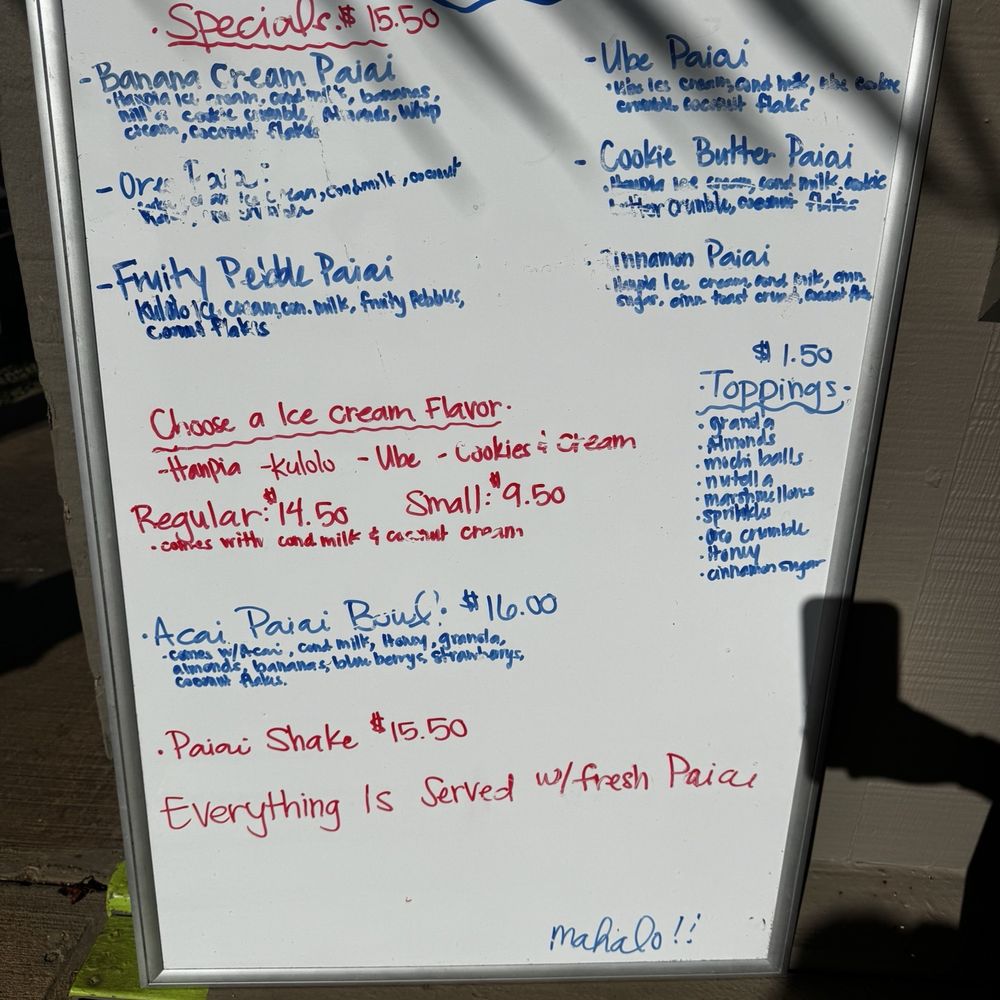 · Specials: $ 15.50
- Banana Cream Paiai
· Haupia Ice cream, cond milk, bananas,
cookie crumble, almonds, Whip
cream, coconut flakes
- Ube Paiai
· Ube Ice cream, cond milk, ube cookie
crumble coconut flakes
- Cookie Butter Paiai
· Haupia Ice cream, cond milk, cookie
butter crumble, coconut flakes
- Ore Paiai
Ice cream, cond milk, coconut
- Fruity Pebble Paiai
Kulolo Ice cream, con. milk, fruity Pebbles,
flakes
Cinnamon Paiai
· Haupia Ice cream, cond milk, cinn.
sugar, cinn. toast crun
$ 1.50
· Toppings ·
· granola
· Almonds
· mochi balls
· nutella
· marshmellows
· sprinkles
· oreo crumble
· Honey
· cinnamon sugar
Choose a Ice cream Flavor.
- Haupia - Kulolo - Ube - Cookies & Cream
Regular: $14.50 Small: $9.50
· comes with cond milk & coconut cream
· Acai Paiai Bowl: $16.00
- comes w/Acai, cond milk, Honey, granola,
almonds, bananas, blueberrys, strawberrys,
coconut flakes.
· Paiai Shake $15.50
Everything Is Served w/fresh Paiai
mahalo!!